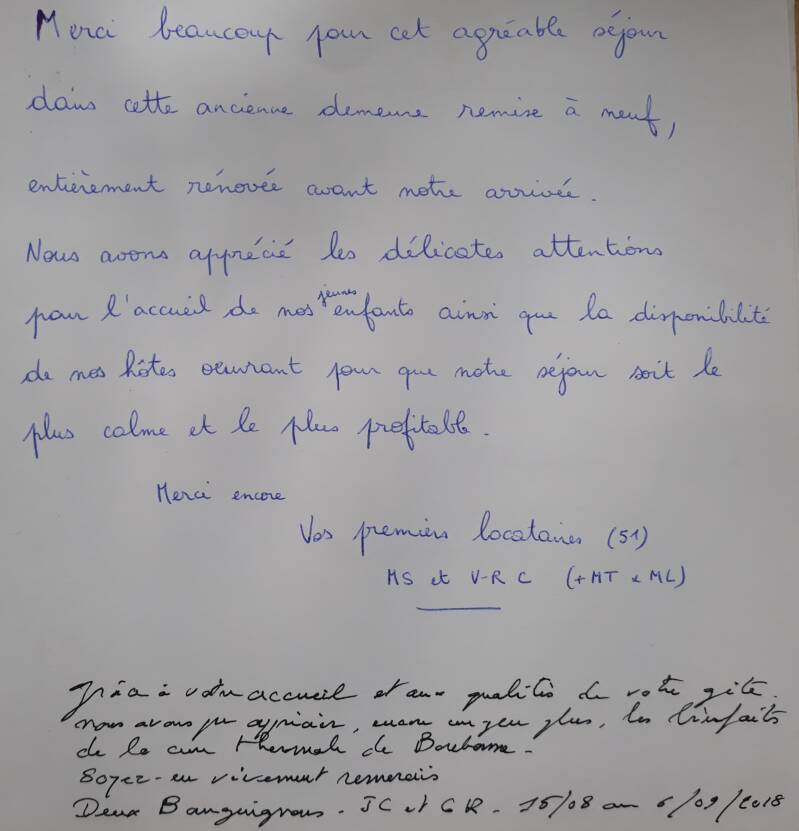 Merci beaucoup pour cet agréable séjour
dans cette ancienne demeure remise à neuf,
entièrement rénovée avant notre arrivée.
Nous avons apprécié les délicates attentions
pour l'accueil de nos jeunes enfants ainsi que la disponibilité
de nos hôtes œuvrant pour que notre séjour soit le
plus calme et le plus profitable.
Merci encore
Vos premiers locataires (51)
MS et V-R C (+MT & ML)
Grâce à votre accueil et aux qualités de votre gîte.
nous avons pu apprécier, encore un peu plus, les bienfaits
de la cure thermale de Bourbonne.
Soyez-en vivement remerciés
Deux Bourguignons - JC et - 15/08 au 6/09/2018